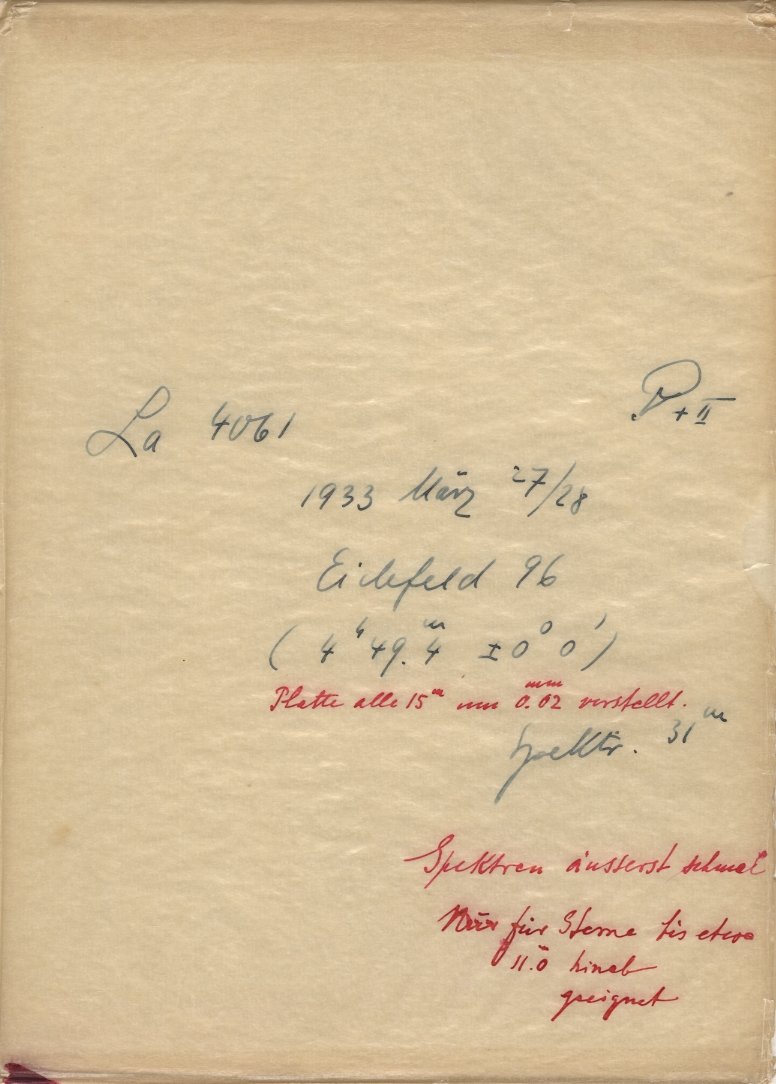 La 4061 P + II
1933 März 27/28
Eichfeld 96
( 4ʰ 49.ᵐ4 ± 0⁰ 0' )
Platte alle 15ᵐ um 0.ᵐᵐ02 verstellt.
Spektr. 31ᵐ
Spektren äusserst schmal
Nur für Sterne bis etwa
11.ᵐ0 hinab
geeignet